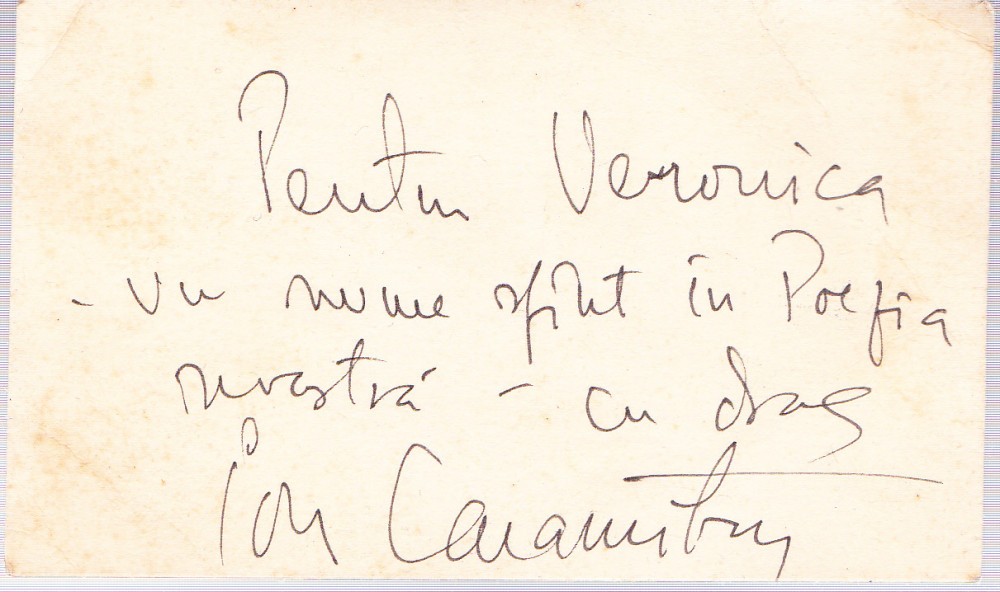 Pentru Veronica
- un nume sfînt în Poezia
noastră - cu drag
Ion Caramitru